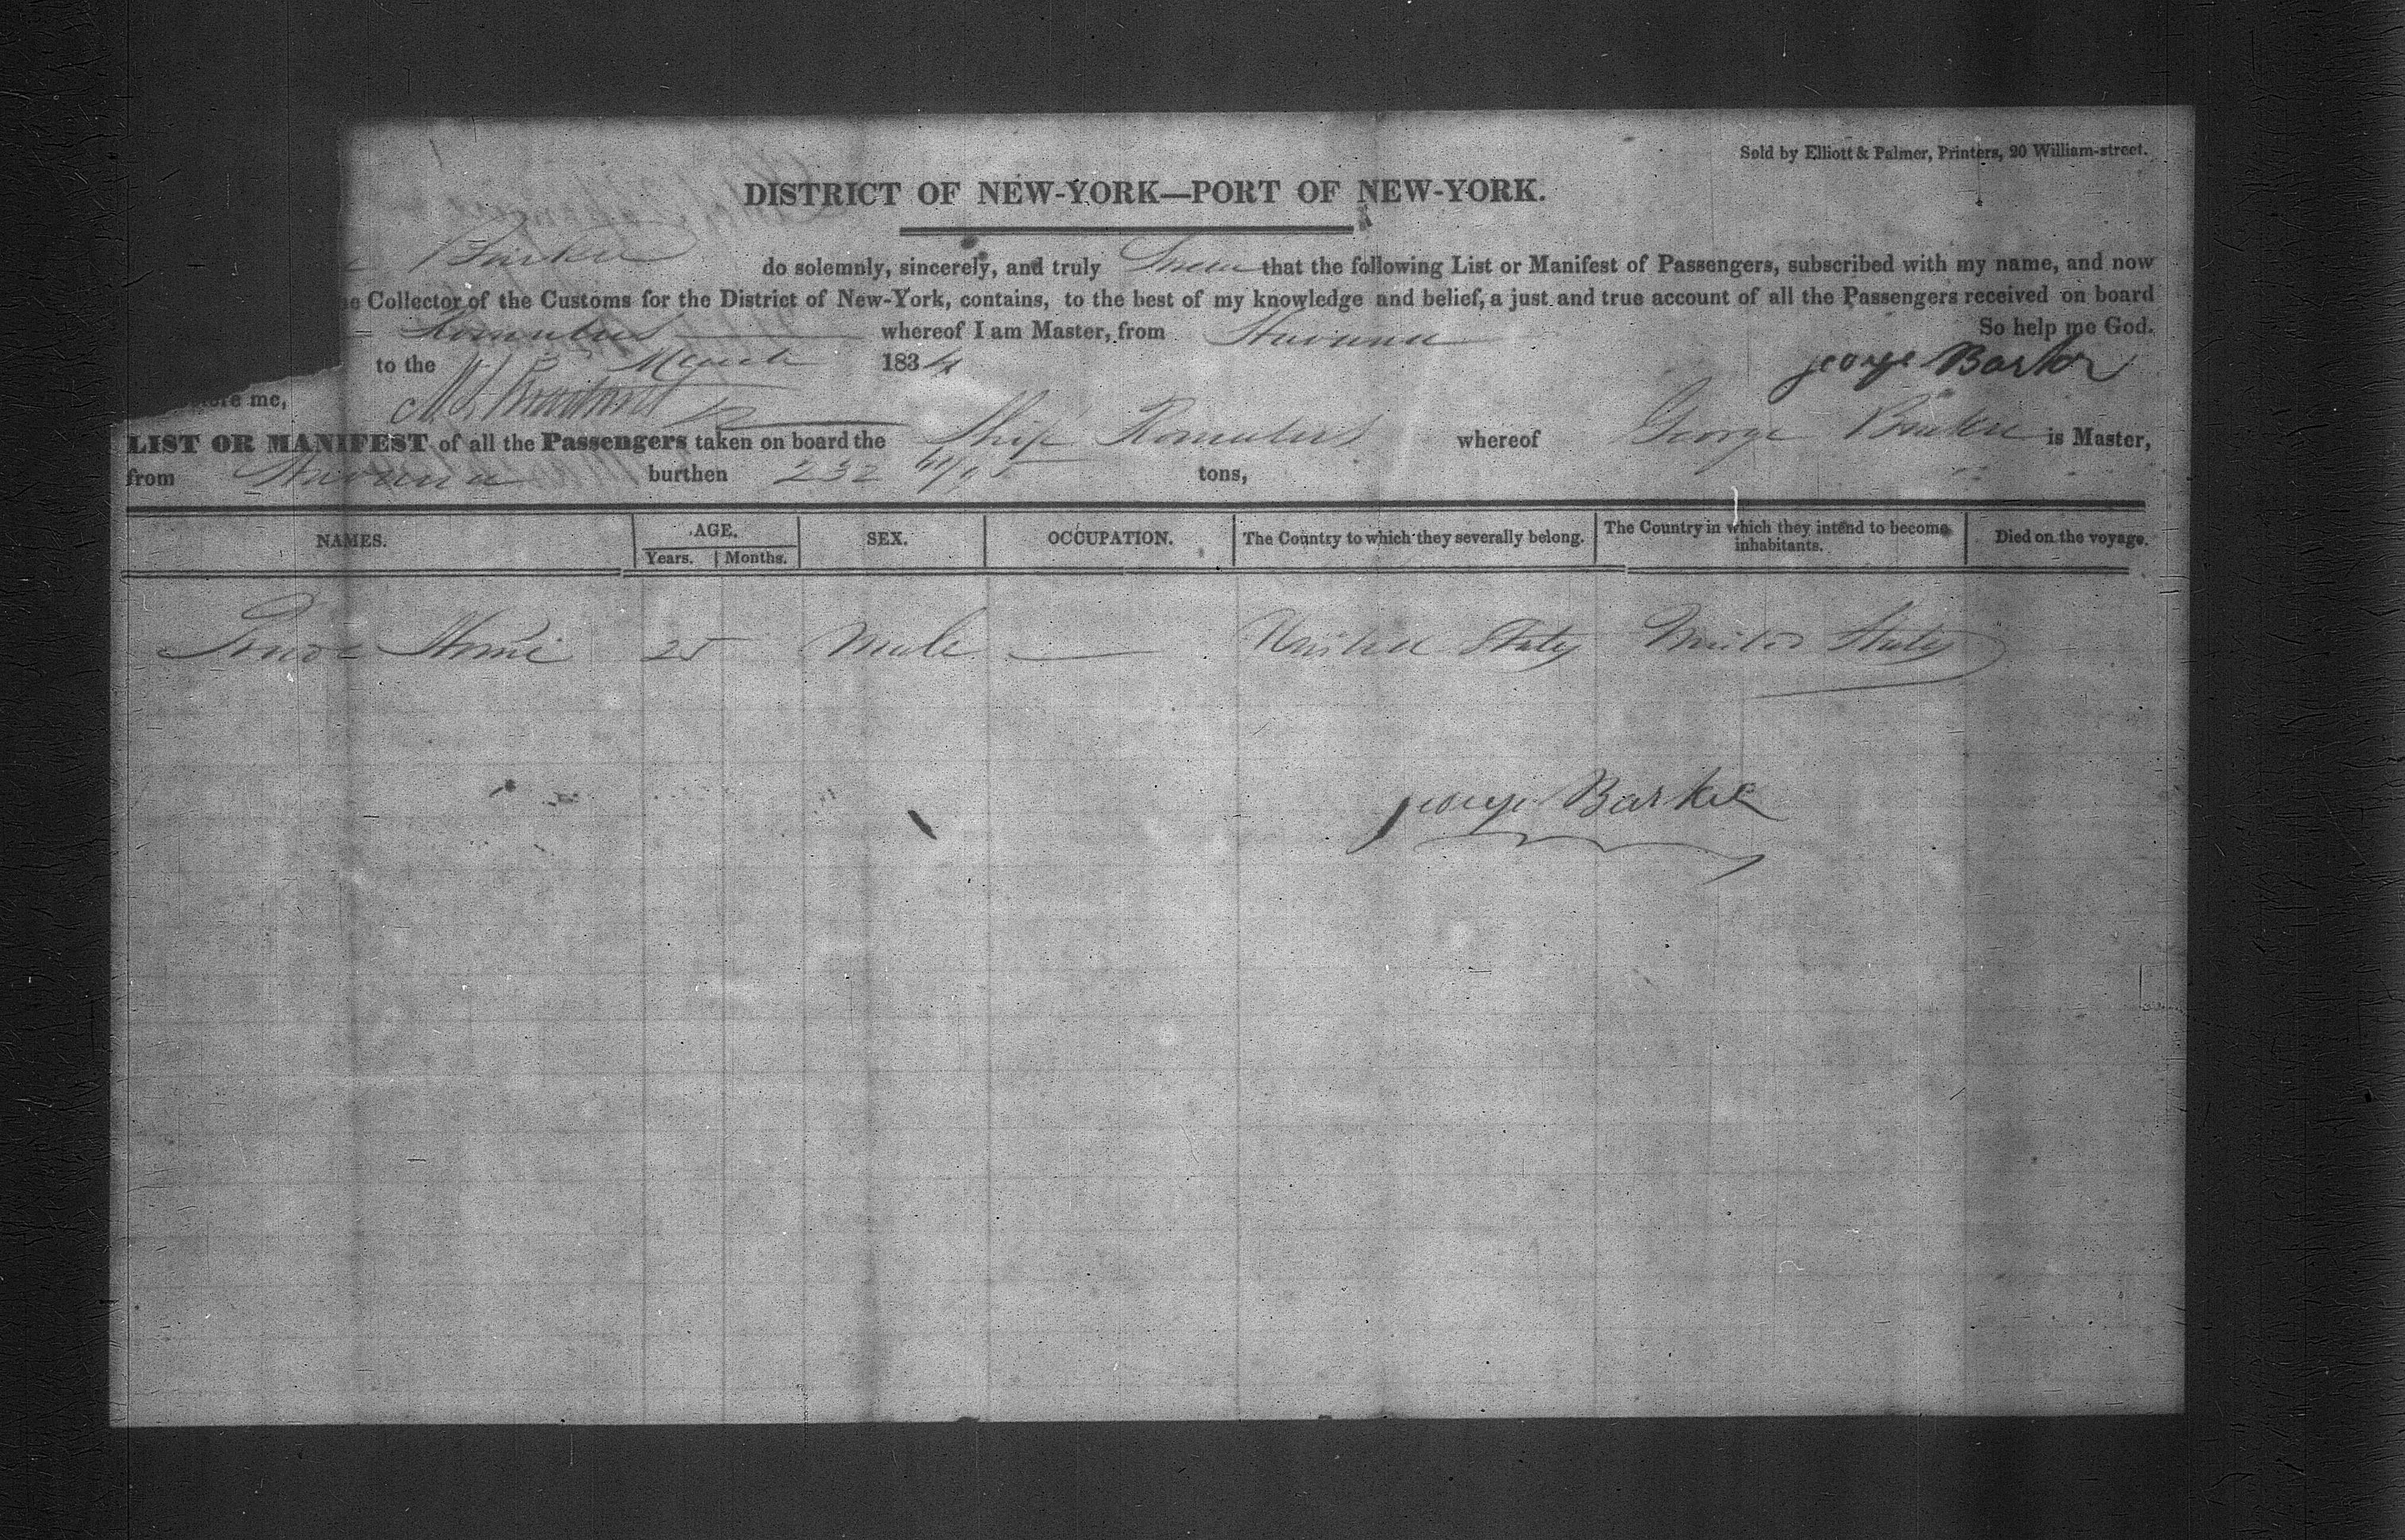 Sold by Elliott & Palmer, Printers, 20 William-street.
DISTRICT OF NEW-YORK—PORT OF NEW-YORK.
Barker do solemnly, sincerely, and truly Swear that the following List or Manifest of Passengers, subscribed with my name, and now
he Collector of the Customs for the District of New-York, contains, to the best of my knowledge and belief, a just and true account of all the Passengers received on board
Romulus whereof I am Master, from Havanna So help me God.
to the March 1834 george Barker
me,
LIST OR MANIFEST of all the Passengers taken on board the Ship Romulus whereof George Barker is Master,
from Havanna burthen 232 tons,
NAMES. AGE. SEX. OCCUPATION. The Country to which they severally belong. The Country in which they intend to become inhabitants. Died on the voyage.
Years. Months.
25 Male — United States United States
george Barker